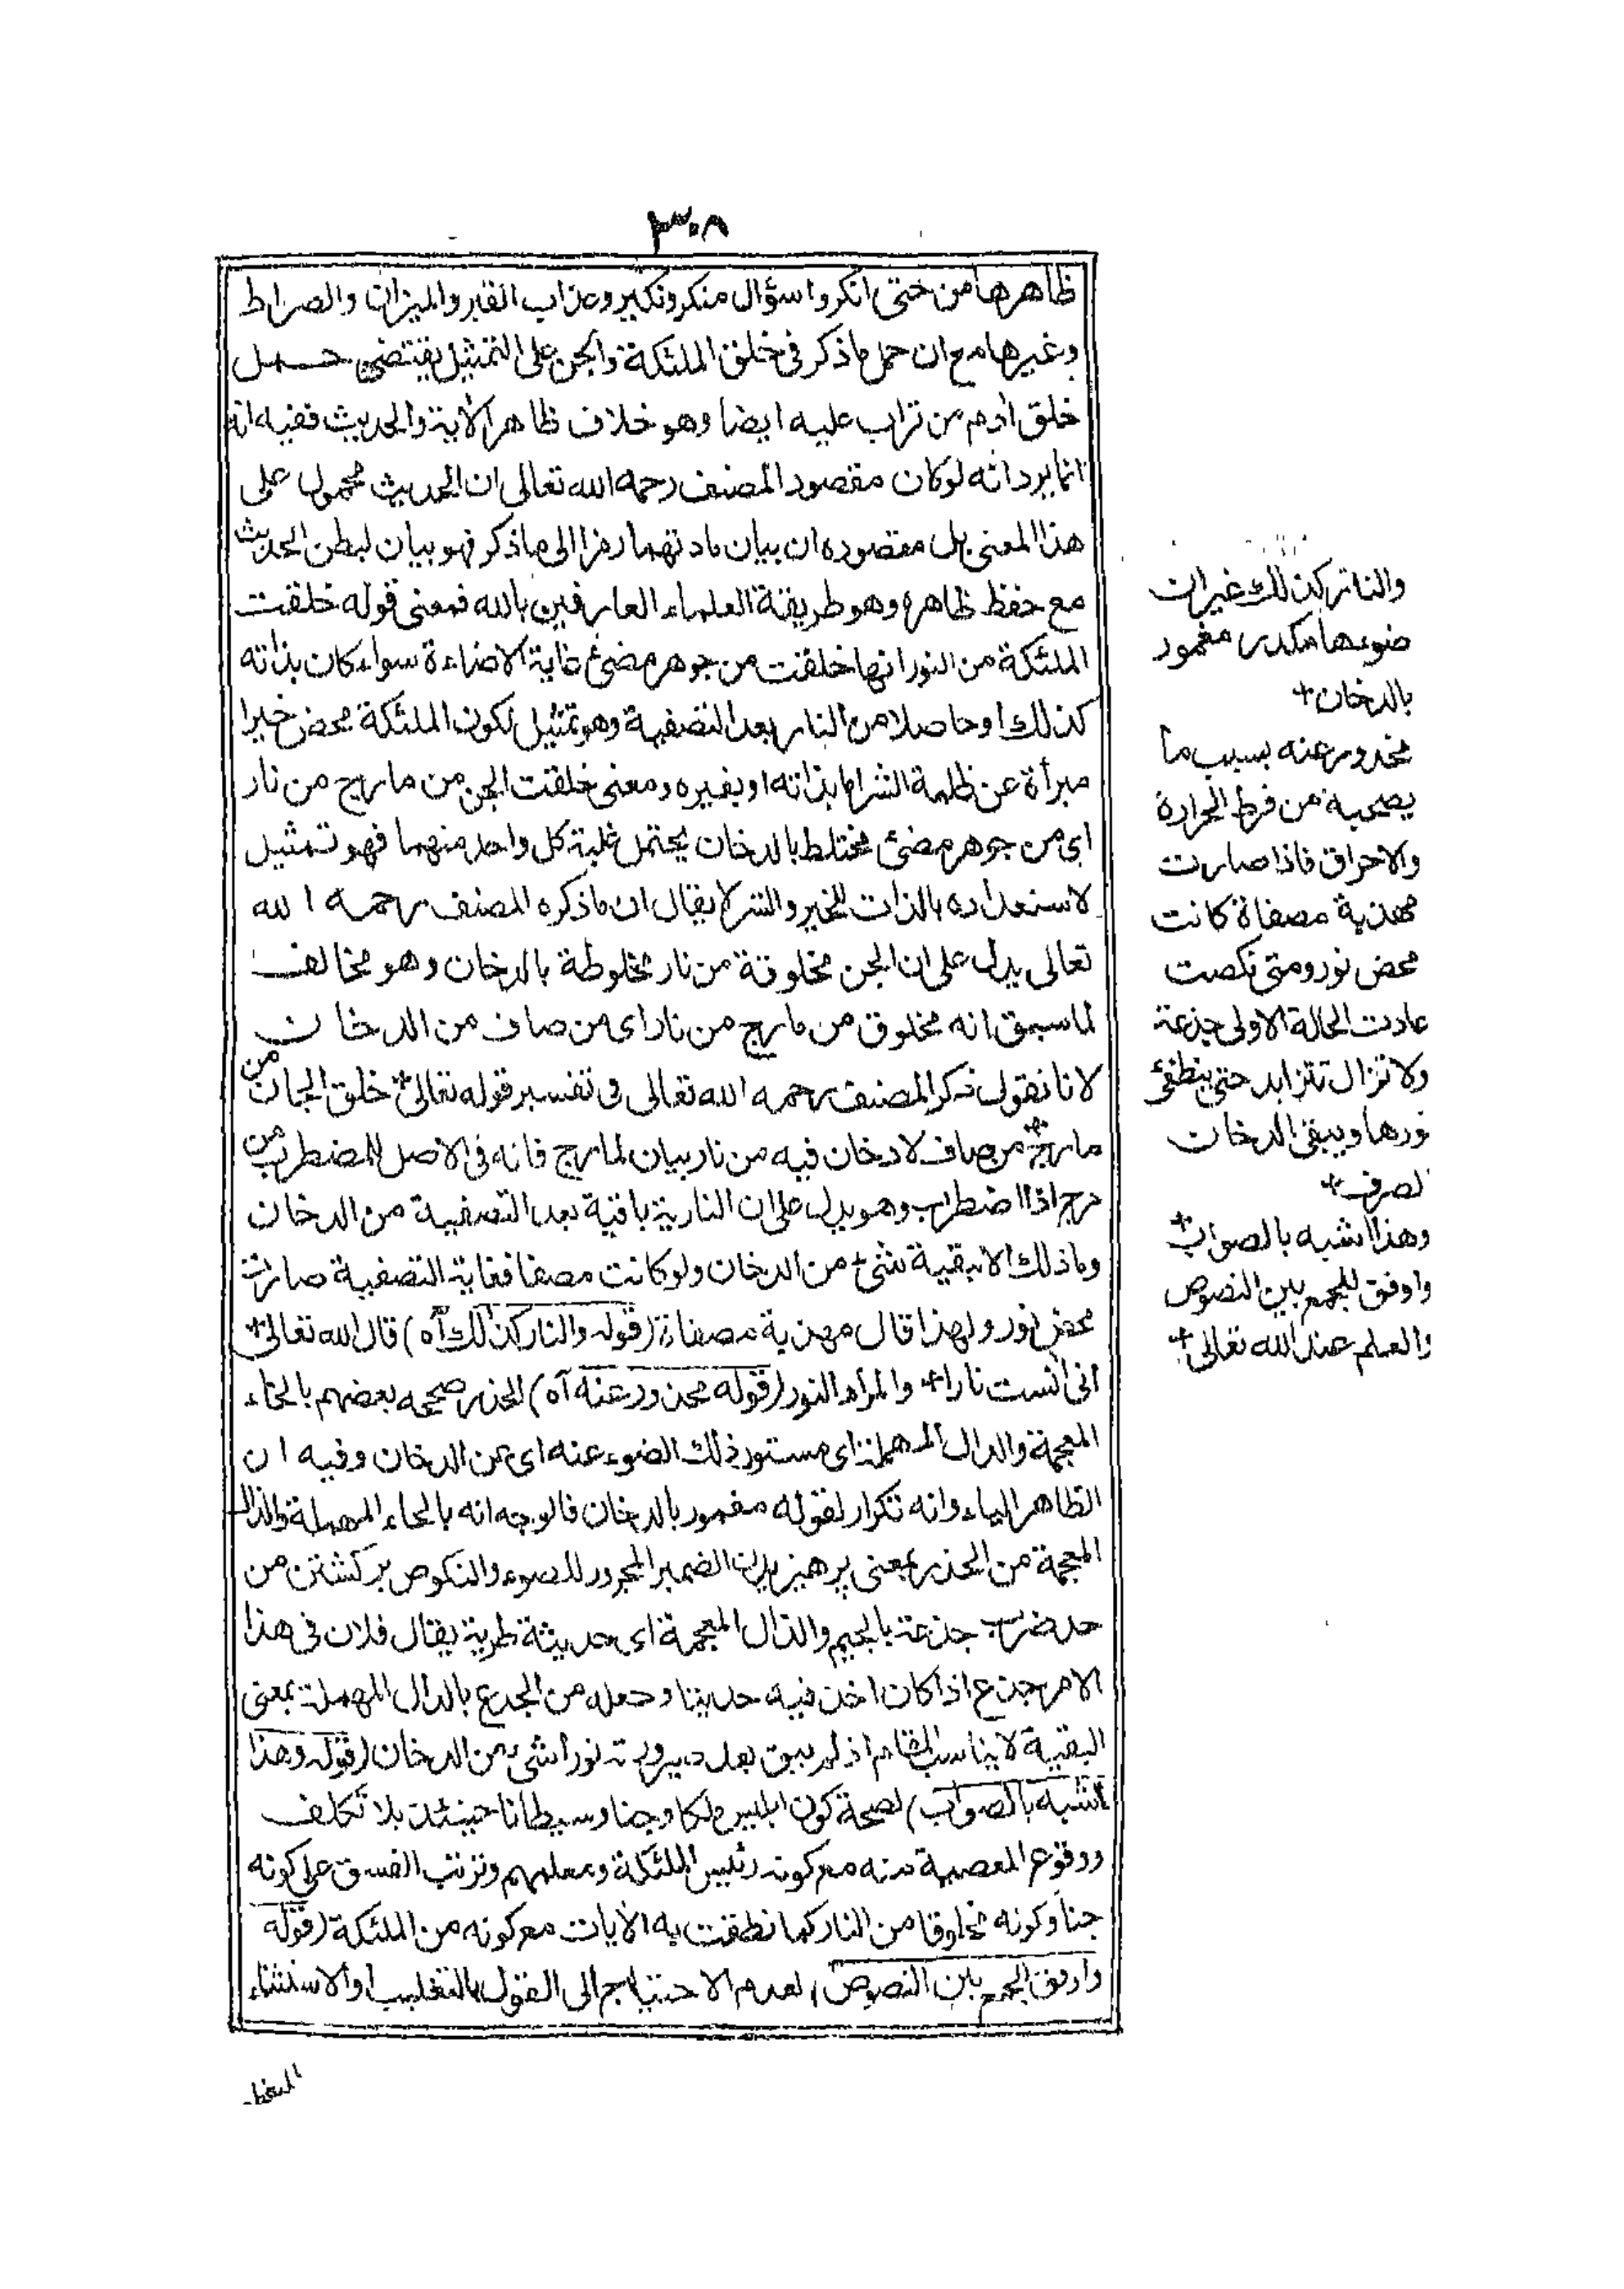 ٣٠٨
ظاهرها من حتى انكروا سؤال منكر ونكير وعذاب القبر والميزان والصراط
وغيرها مع ان حمل ما ذكر فى خلق الملئكة والجن على التمثيل يقتضى حمل
خلق آدم من تراب عليه ايضا وهو خلاف ظاهر الآية والحديث ففيه انه
انما يرد انه لو كان مقصود المصنف رحمه الله تعالى ان الحديث محمول على
هذا المعنى بل مقصوده ان بيان مادتهما رمزا الى ما ذكر فهو بيان لبطن الحديث
مع حفظ ظاهره وهو طريقة العلماء العارفين بالله فمعنى قوله خلقت
الملئكة من النور انها خلقت من جوهر مضئ غاية الاضاءة سواء كان بذاته
كذلك او حاصلا من النار بعد التصفية وهو تمثيل لكون الملئكة محض خيرا
مبرأة عن ظلمة الشر اما بذاته او بغيره ومعنى خلقت الجن من مارج من نار
اى من جوهر مضئ مختلط بالدخان يحتمل غلبة كل واحد منهما فهو تمثيل
لاستعداده بالذات للخير والشر لا يقال ان ما ذكره المصنف رحمه الله
تعالى يدل على ان الجن مخلوقة من نار مخلوطة بالدخان وهو مخالف
لما سبق انه مخلوق من مارج من نار اى من صاف من الدخان
لانا نقول ذكر المصنف رحمه الله تعالى فى تفسير قوله تعالى + خلق الجان من
مارج + من صاف لا دخان فيه من نار بيان لمارج فانه فى الاصل للمضطرب من
مرج اذا اضطرب وهو يدل على ان النارية باقية بعد التصفية من الدخان
وما ذلك الا بقية شئ من الدخان ولو كانت مصفا فغاية التصفية صارت
محض نور ولهذا قال مهذبة مصفاة (قوله والنار كذلك آه) قال الله تعالى +
انى آنست نارا + والمراد النور (قوله محذور عنه آه) الخدر صححه بعضهم بالخاء
المعجمة والدال المهملة اى مستور ذلك الضوء عنه اى عن الدخان وفيه ان
الظاهر الباء وانه تكرار لقوله مغمور بالدخان فالوجه انه بالحاء المهملة والذال
المعجمة من الحذر بمعنى پرهيزيدن الضمير المجرور للضوء والنكوص برگشتن من
حد ضرب جذعة بالجيم والذال المعجمة اى حديثة طرية يقال فلان فى هذا
الامر جذع اذا كان اخذ فيه حديثا وجعله من الجدع بالدال المهملة بمعنى
البقية لا يناسب المقام اذ لم يبق بعد صيرورته نورا شئ من الدخان (قوله وهذا
اشبه بالصواب) لصحة كون ابليس ملكا وجنا وشيطانا حينئذ بلا تكلف
ووقوع المعصية منه مع كونه رئيس الملئكة ومعلمهم وترتب الفسق على كونه
جنا وكونه مخلوقا من النار كما نطقت به الآيات مع كونه من الملئكة (قوله
واوفق للجمع بين النصوص) لعدم الاحتياج الى القول بالتغليب او الاستثناء
والنار كذلك غير ان
ضوءها مكدر مغمور
بالدخان +
محذور عنه بسبب ما
يصحبه من فرط الحرارة
والاحراق فاذا صارت
مهذبة مصفاة كانت
محض نور ومتى نكصت
عادت الحالة الاولى جذعة
ولا تزال تتزايد حتى ينطفئ
نورها ويبقى الدخان
لصرف +
وهذا اشبه بالصواب +
واوفق للجمع بين النصوص
والعلم عند الله تعالى +